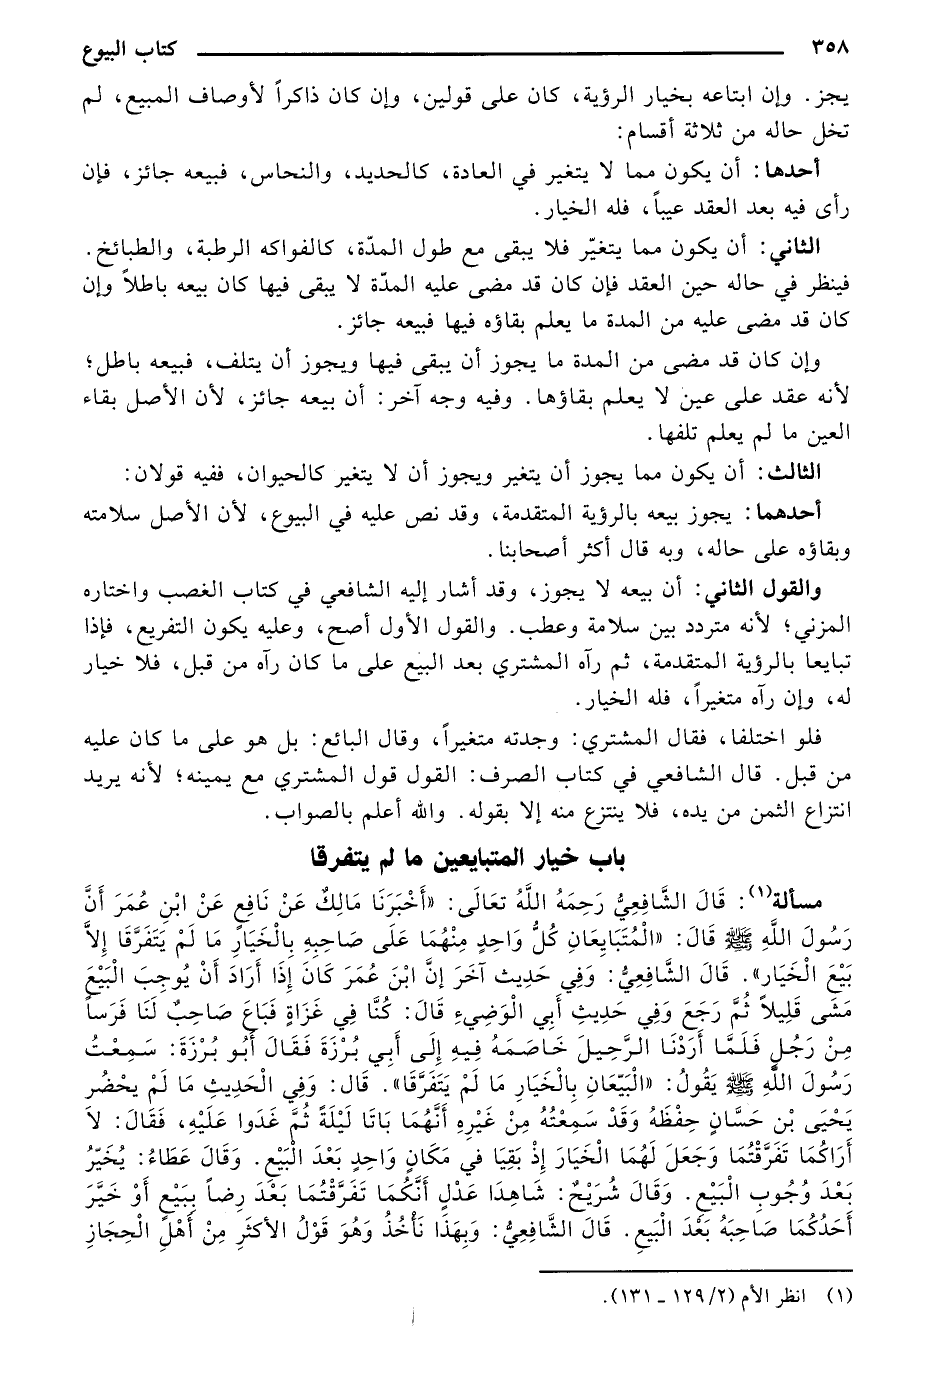 ٣٥٨ كتاب البيوع
يجز. وإن ابتاعه بخيار الرؤية، كان على قولين، وإن كان ذاكراً لأوصاف المبيع، لم
تخل حاله من ثلاثة أقسام:
أحدها: أن يكون مما لا يتغير في العادة، كالحديد، والنحاس، فبيعه جائز، فإن
رأى فيه بعد العقد عيباً، فله الخيار.
الثاني: أن يكون مما يتغيّر فلا يبقى مع طول المدّة، كالفواكه الرطبة، والطبائخ.
فينظر في حاله حين العقد فإن كان قد مضى عليه المدّة لا يبقى فيها كان بيعه باطلاً وإن
كان قد مضى عليه من المدة ما يعلم بقاؤه فيها فبيعه جائز.
وإن كان قد مضى من المدة ما يجوز أن يبقى فيها ويجوز أن يتلف، فبيعه باطل؛
لأنه عقد على عين لا يعلم بقاؤها. وفيه وجه آخر: أن بيعه جائز، لأن الأصل بقاء
العين ما لم يعلم تلفها.
الثالث: أن يكون مما يجوز أن يتغير ويجوز أن لا يتغير كالحيوان، ففيه قولان:
أحدهما: يجوز بيعه بالرؤية المتقدمة، وقد نص عليه في البيوع، لأن الأصل سلامته
وبقاؤه على حاله، وبه قال أكثر أصحابنا.
والقول الثاني: أن بيعه لا يجوز، وقد أشار إليه الشافعي في كتاب الغصب واختاره
المزني؛ لأنه متردد بين سلامة وعطب. والقول الأول أصح، وعليه يكون التفريع، فإذا
تبايعا بالرؤية المتقدمة، ثم رآه المشتري بعد البيع على ما كان رآه من قبل، فلا خيار
له، وإن رآه متغيراً، فله الخيار.
فلو اختلفا، فقال المشتري: وجدته متغيراً، وقال البائع: بل هو على ما كان عليه
من قبل. قال الشافعي في كتاب الصرف: القول قول المشتري مع يمينه؛ لأنه يريد
انتزاع الثمن من يده، فلا ينتزع منه إلا بقوله. والله أعلم بالصواب.
باب خيار المتبايعين ما لم يتفرقا
مسألة(١): قَالَ الشَّافِعِيُّ رَحِمَهُ اللَّهُ تعَالَى: «أَخْبَرَنَا مَالِكٌ عَنْ نَافِعٍ عَنْ ابْنِ عُمَرَ أَنَّ
رَسُولَ اللَّهِ ﷺ قَالَ: «الْمُتَبَايِعَانِ كُلُّ وَاحِدٍ مِنْهُمَا عَلَى صَاحِبِهِ بِالْخَيَارِ مَا لَمْ يَتَفَرَّقَا إِلاَّ
بَيْعَ الْخَيَارِ». قَالَ الشَّافِعِيُّ: وَفِي حَدِيث آخَرَ إِنَّ ابْنَ عُمَرَ كَانَ إِذَا أَرَادَ أَنْ يُوجِبَ الْبَيْعَ
مَشَى قَلِيلاً ثُمَّ رَجَعَ وَفِي حَدِيثِ أَبِي الْوَضِيءِ قَالَ: كُنَّا فِي غَزَاةٍ فَبَاعَ صَاحِبٌ لَنَا فَرَساً
مِنْ رَجُلٍ فَلَمَّا أَرَدْنَا الرَّحِيلَ خَاصَمَهُ فِيهِ إِلَى أَبِي بُرْزَةَ فَقَالَ أَبُو بُرْزَةَ: سَمِعْتُ
رَسُولَ اللَّهِ ﷺ يَقُولُ: «الْبَيِّعَانِ بِالْخَيَارِ مَا لَمْ يَتَفَرَّقَا». قَال: وَفِي الْحَدِيثِ مَا لَمْ يحْضُر
يَحْيَى بْن حَسَّانٍ حِفْظَهُ وَقَدْ سَمِعْتُهُ مِنْ غَيْرِهِ أَنَّهُمَا بَاتَا لَيْلَةً ثُمَّ غَدَوا عَلَيْهِ، فَقَالَ: لاَ
أَرَاكُمَا تَفَرَّقْتُمَا وَجَعَلَ لَهُمَا الْخَيَارَ إِذْ بَقِيَا فِي مَكَانٍ وَاحِدٍ بَعْدَ الْبَيْعِ. وَقَالَ عَطَاءُ: يُخَيِّرُ
بَعْدَ وُجُوبِ الْبَيْعِ. وَقَالَ شُرَيْحٌ: شَاهِدَا عَدْلٍ أَنَّكُمَا تَفَرَّقْتُمَا بَعْدَ رِضاً بِبَيْعٍ أَوْ خَيَّرَ
أَحَدُكُمَا صَاحِبَهُ بَعْدَ الْبَيعِ. قَالَ الشَّافِعِيُّ: وَبِهَذَا نَأْخُذُ وَهُوَ قَوْلُ الأكثَرِ مِنْ أَهْلِ الْحِجَازِ
(١) انظر الأم (١٢٩/٢ ـ ١٣١).